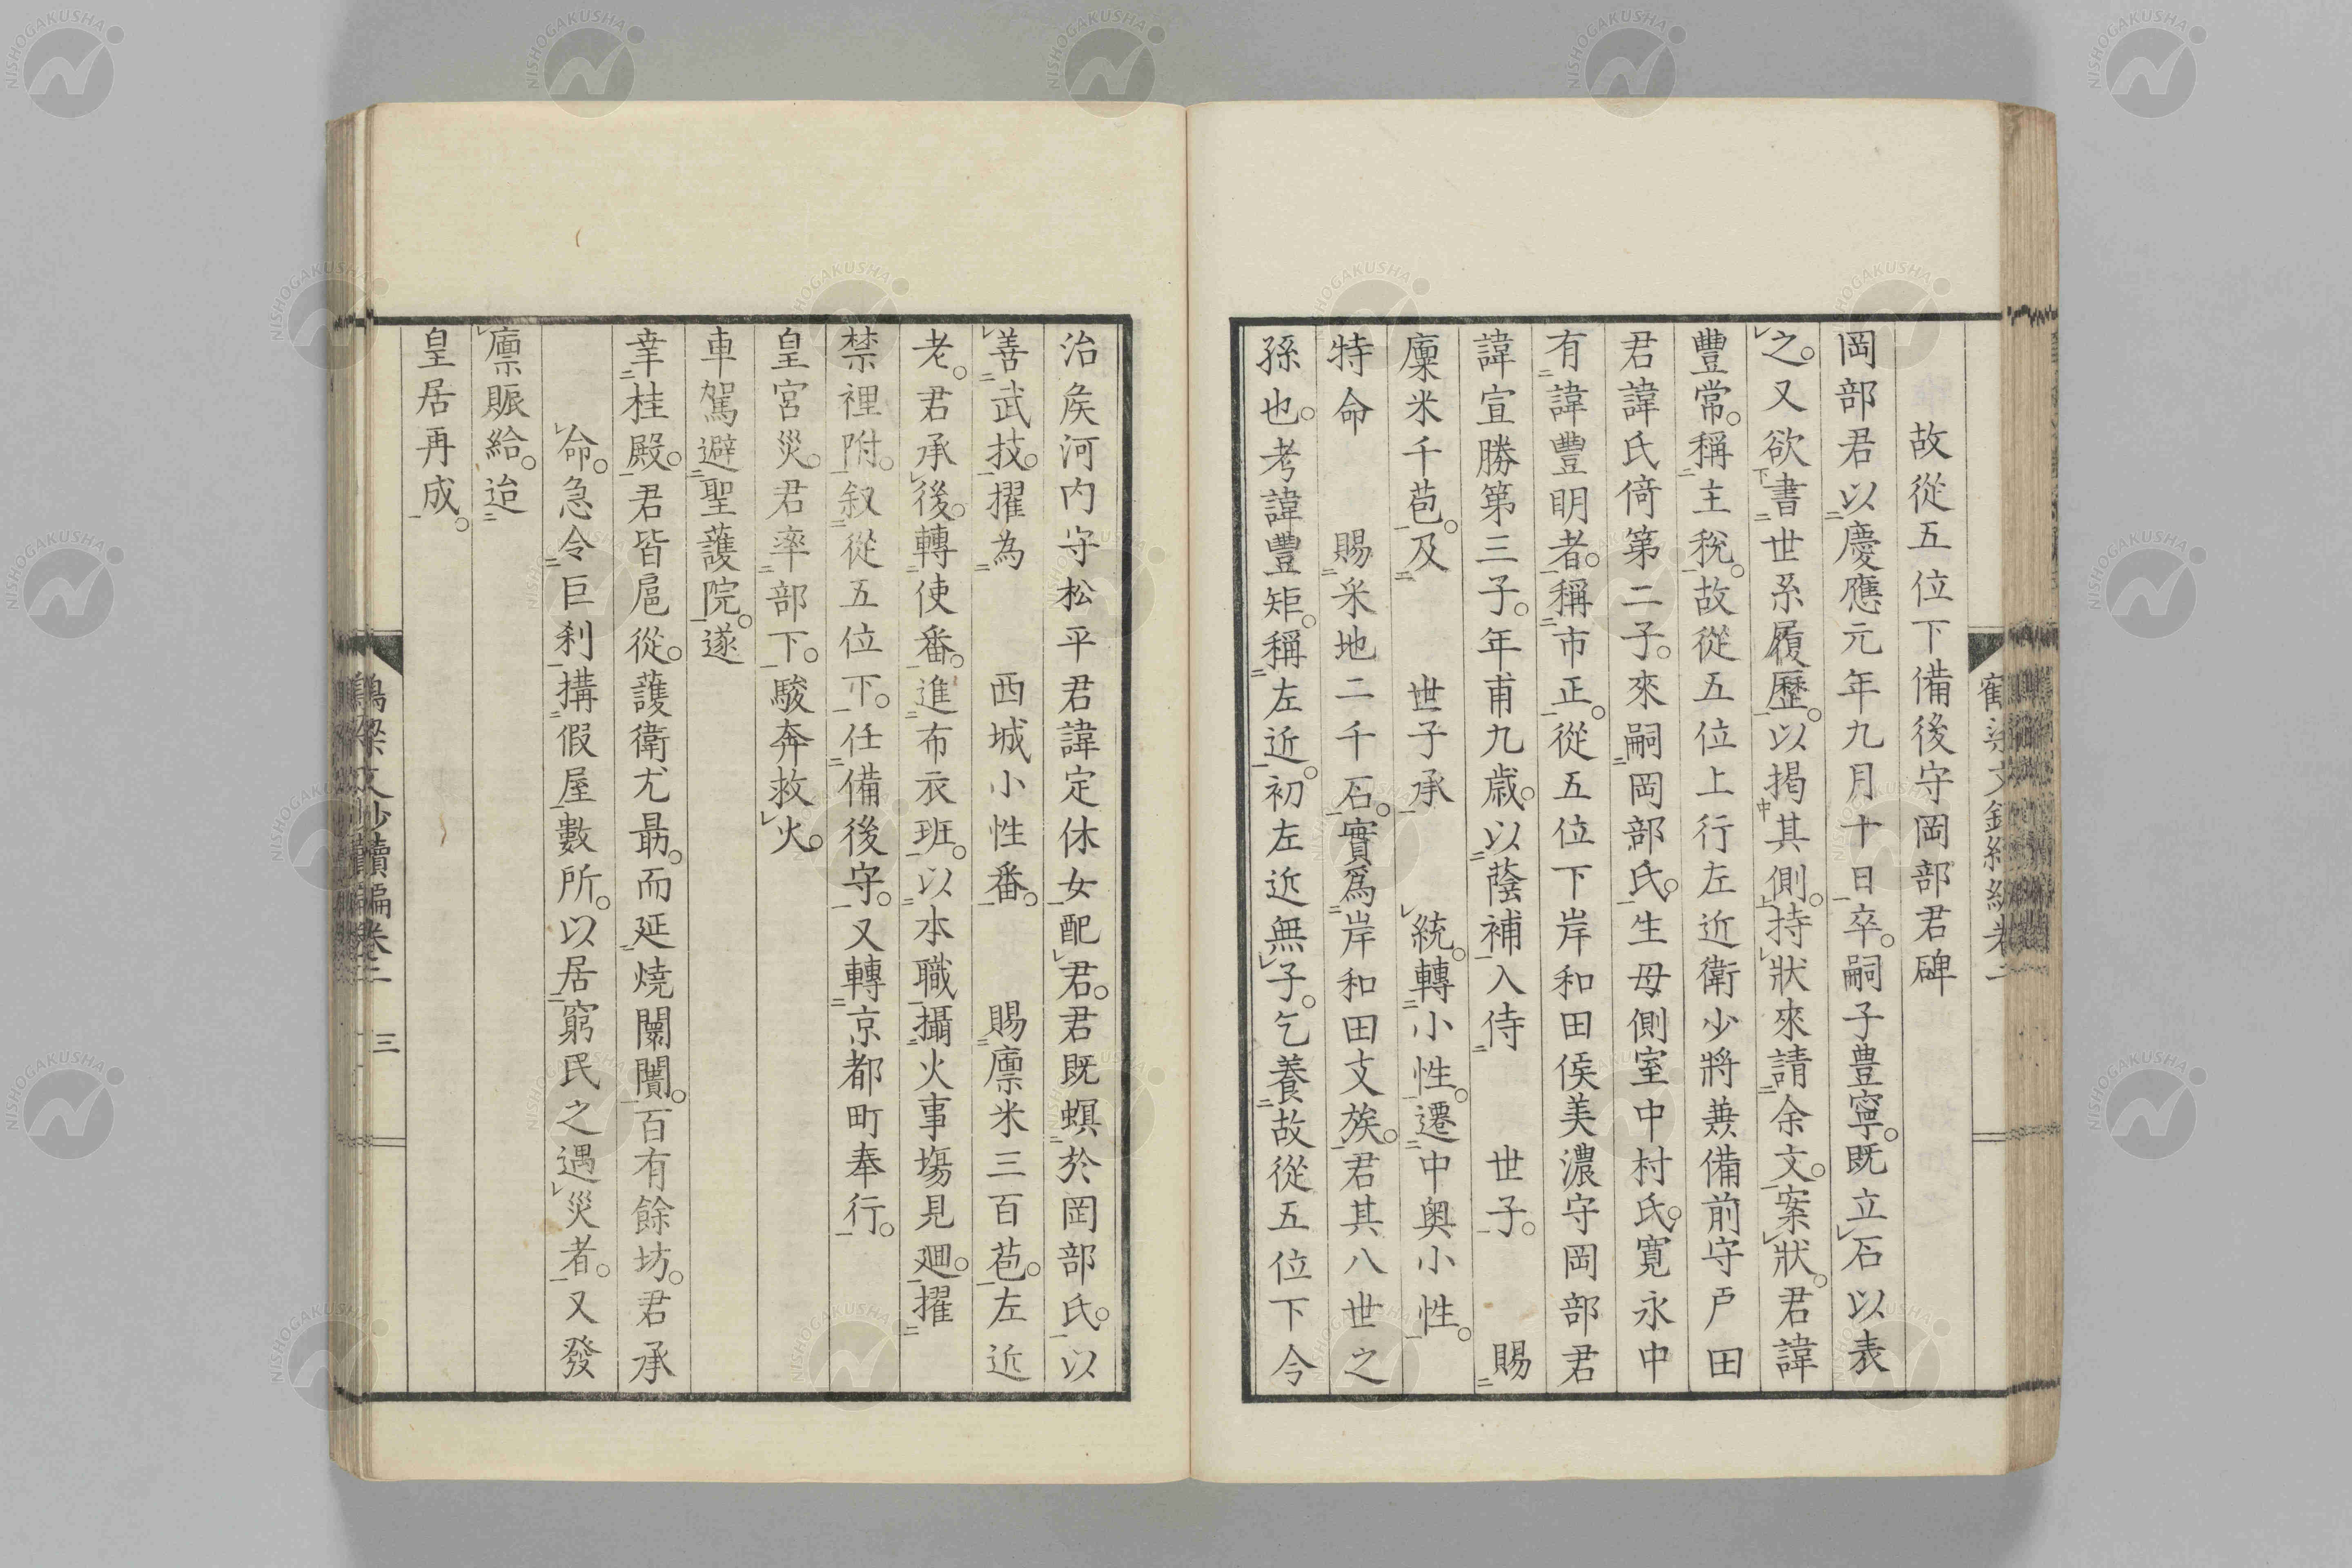 故從五位下備後守岡部君碑
岡部君以慶應元年九月十日卒。嗣子豊寧。既立石以表
之。又欲書世系履歷。以揭其側。持狀來請余文。案狀。君諱
豐常。稱主稅。故從五位上行左近衛少將兼備前守戸田
君諱氏倚第二子。來嗣岡部氏。生母側室中村氏。寬永中
有諱豐明者。稱市正。從五位下岸和田侯美濃守岡部君
諱宣勝第三子。年甫九歳。以蔭補入侍 世子。 賜
廩米千苞。及 世子承 統。轉小性。遷中奥小性。
特命 賜采地二千石。實爲岸和田支族。君其八世之
孫也。考諱豐矩。稱左近。初左近無子。乞養故從五位下今
治矦河内守松平君諱定休女配君。君既螟於岡部氏。以
善武技。擢為 西城小性番。 賜廪米三百苞。左近
老。君承後。轉使番。進布衣班。以本職攝火事塲見廽。擢
禁裡附。叙從五位下。任備後守。又轉京都町奉行。
皇宮災。君率部下。駿奔救火。
車駕避聖護院。遂
幸桂殿。君皆扈從。護衛尤勗。而延燒闤闠。百有餘坊。君承
命。急令巨刹搆假屋數所。以居窮民之遇災者。又發
廪賑給。迨
皇居再成。
鶴梁文鈔續編卷二 三